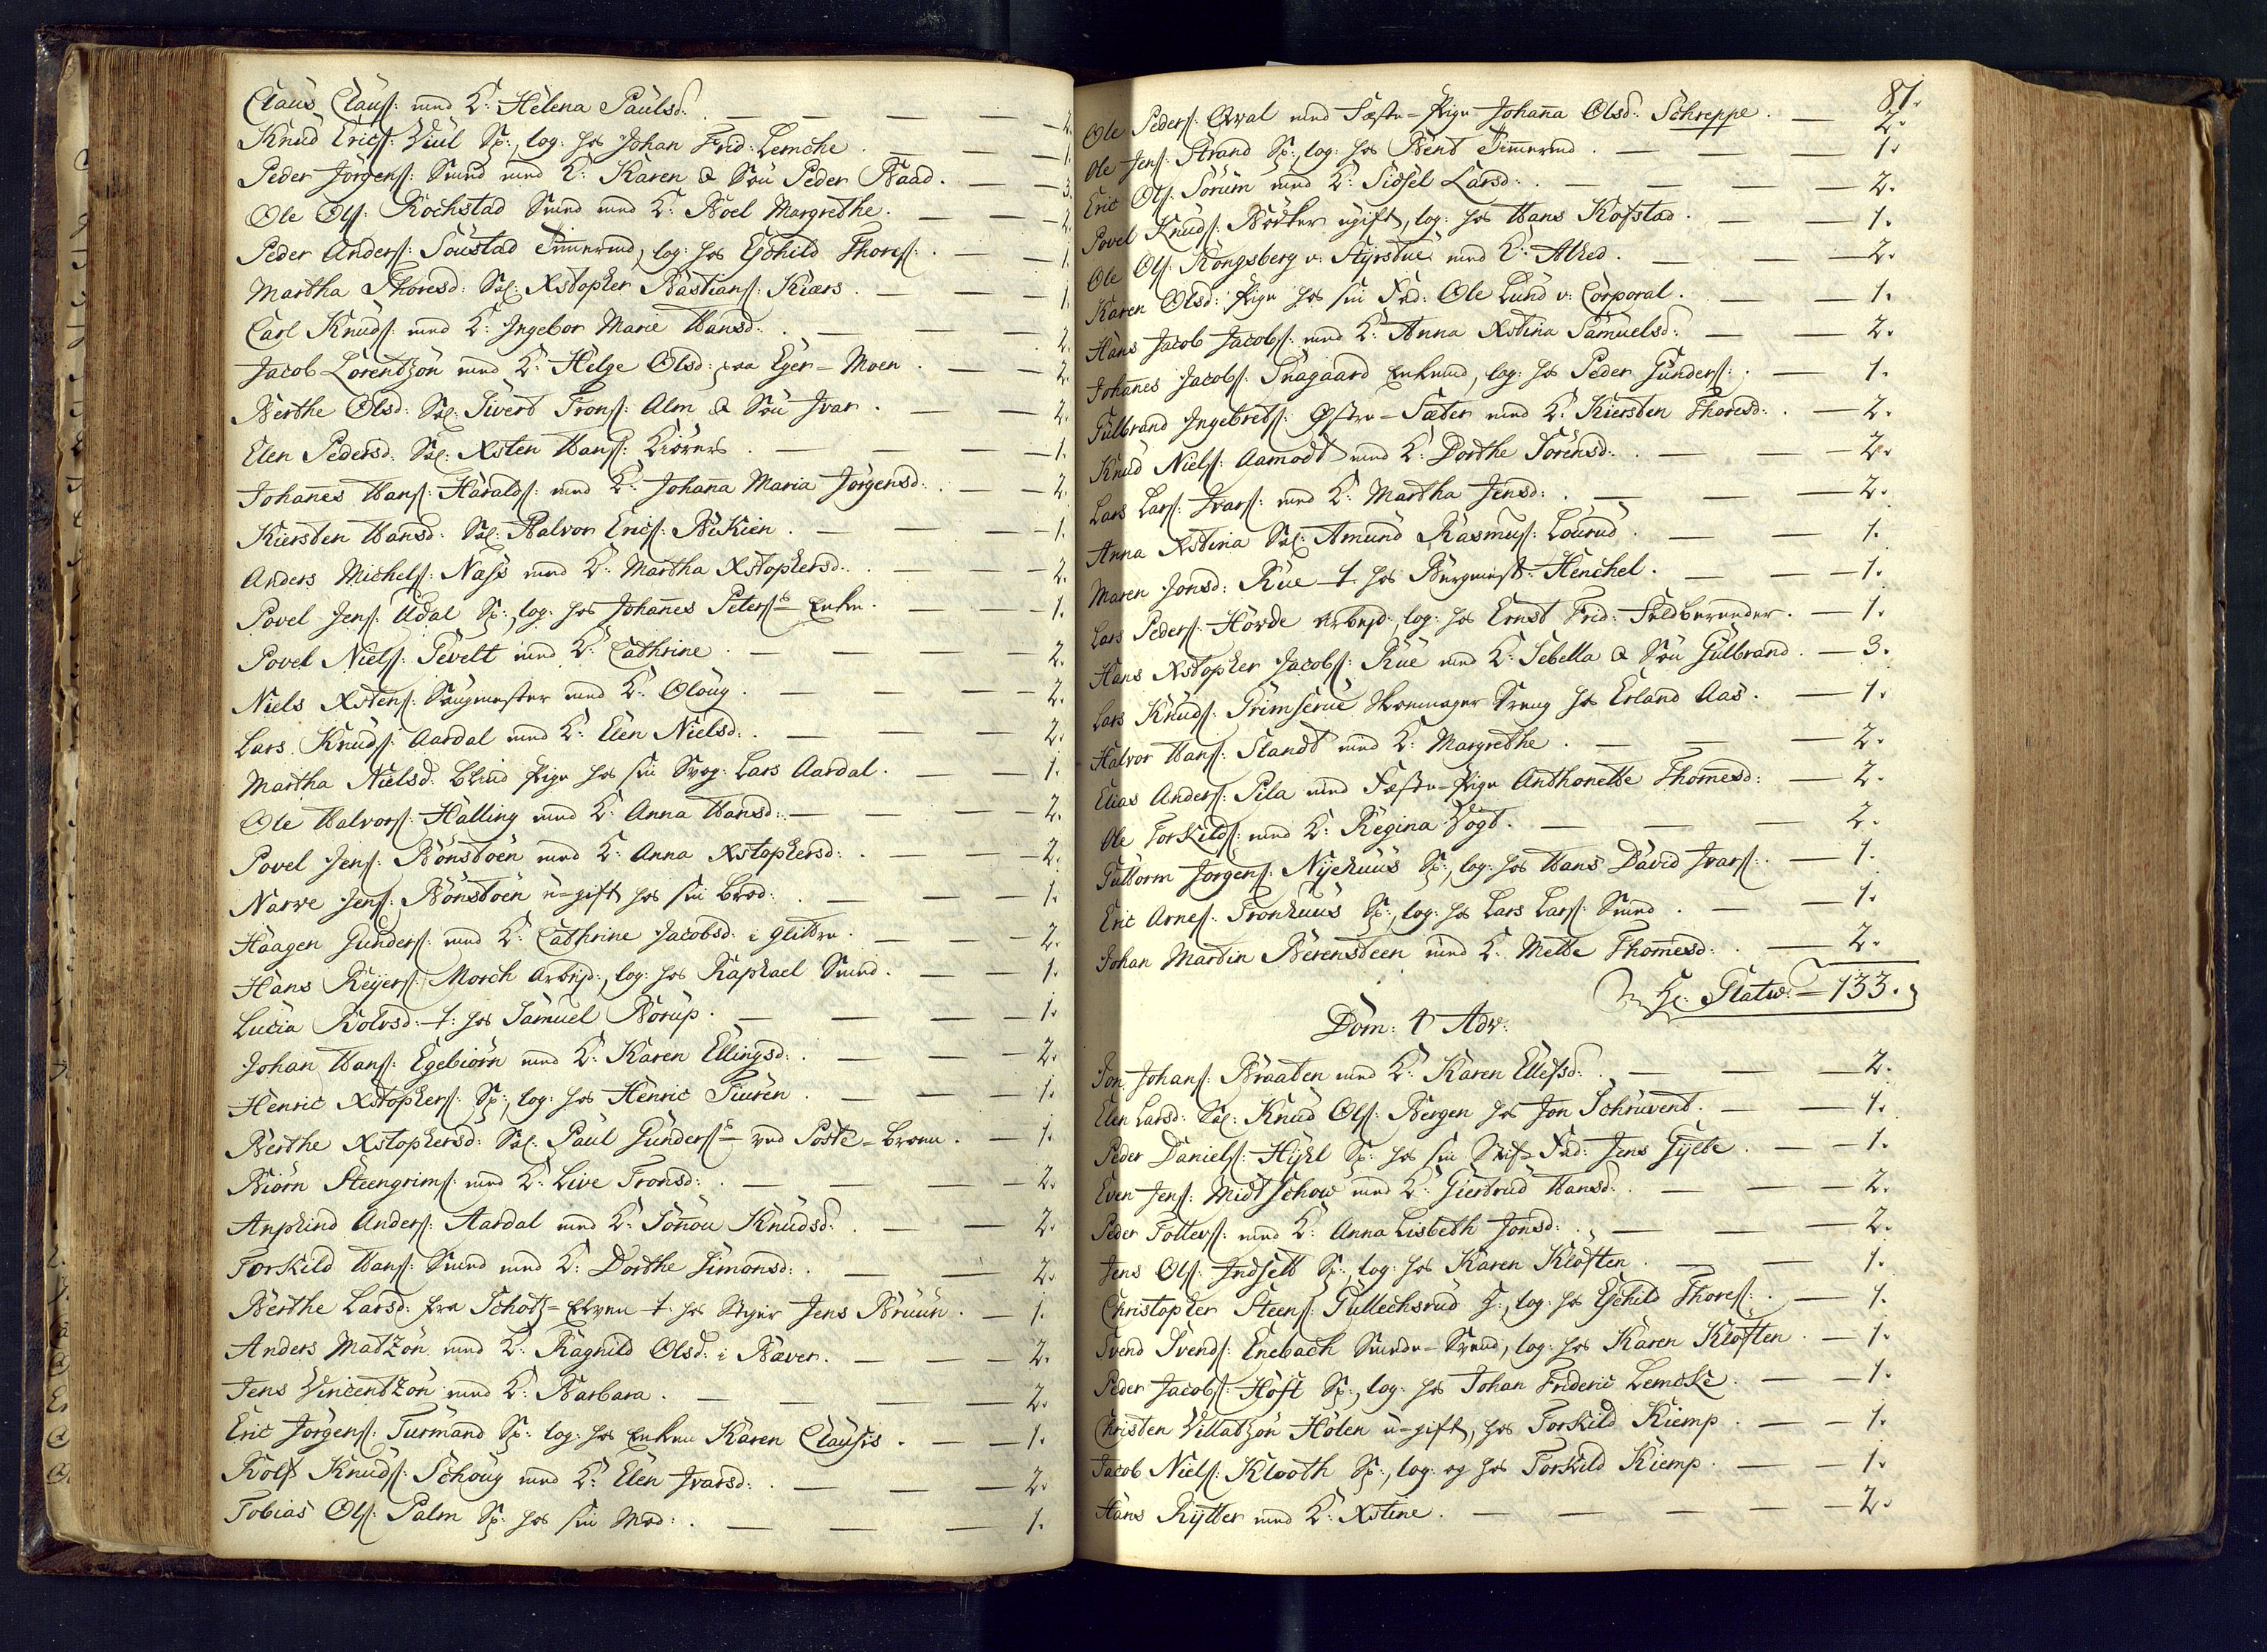 Claus Clausſ: med K: Helena Paulsd: . — — — — 2.
Knud Ericſ: Viul Sp:, log: hos Johan Frid: Lemche . — — — 1.
Peder Jörgenſ: Smed med K: Karen & Sön Peder Baad . — — 3.
Ole Olſ: Rochstad Smed med K: Boel Margrethe . — — — 2.
Peder Anderſ: Soustad Timmermd, log: hos Eschild Thoreſ: . — — 1.
Martha Thoresd: Sal: Xstopher Bastianſ: Kiærs . — — — 1.
Carl Knudſ: med K: Ingebor Marie Hansd: . — — — 2.
Jacob Lorentzön med K: Helge Olsd: paa Eger-Moen . — — 2.
Berthe Olsd: Sal: Sivert Tronſ: Alm & Sön Ivar . — — — 2.
Elen Pedersd: Sal: Xsten Hanſ: Kiörers . — — — — 1.
Johannes Hanſ: Haraldſ: med K: Johanna Maria Jörgensd: — — 2.
Kiersten Hansd: Sal: Halvor Ericſ: Bekien . — — — 1.
Anders Michelſ: Næss med K: Martha Xstophersd: . — — — 2.
Povel Jenſ: Udal Sp:, log: hos Johannes Peterſs Enke . — — — 1.
Povel Nielſ: Sevelt med K: Cathrine . — — — — 2.
Niels Xstenſ: Saugmester med K: Oloug . — — — — 2.
Lars Knudſ: Aardal med K: Elen Nielsd: . — — — 2.
Martha Nielsd: blind Pige hos sin Svog: Lars Aardal . — — 1.
Ole Halvorſ: Halling med K: Anna Hansd: . — — — 2.
Povel Jenſ: Bönstoen med K: Anna Xstophersd: . — — — 2.
Narve Jenſ: Bönstoen u-gift hos sin Brod: . — — — 1.
Haagen Gunderſ: med K: Cathrine Jacobsd: i Glittre . — — — 2.
Hans Reyerſ: Morch Arbejd:, log: hos Raphael Smed . — — 1.
Lucia Rolvsd: t: hos Samuel Borup . — — — — 1.
Johan Hanſ: Egebiörn med K: Karen Ellingsd: . — — — 2.
Henric Xstopherſ: Sp:, log: hos Henric Tiuren . — — — 1.
Berthe Xstophersd: Sal: Paul Gunderſs ved Poste-Broen . — 1.
Biörn Steengrimſ: med K: Live Tronsd: . — — — 2.
Anphind Anderſ: Aardal med K: Sönnou Knudsd: . — — 2.
Torkild Hanſ: Smed med K: Dorthe Simonsd: . — — — 2.
Berthe Larsd: fra Schotz-Elven t. hos Styr Jens Bruun . — 1.
Anders Matzön med K: Ragnild Olsd: i Bæver . — — — 2.
Jens Vincentzön med K: Barbara . — — — — 2.
Eric Jörgenſ: Turmand Sp: log: hos Enken Karen Clausis . — — 1.
Rolf Knudſ: Schoug med K: Elen Ivarsd: . — — — 2.
Tobias Olſ: Palm Sp: hos sin Mod: . — — — 1.
81.
Ole Pederſ: Qval med Fæste-Pige Johanna Olsd: Schreppe . — 2.
Ole Jenſ: Strand Sp:, log: hos Bent Timmermd . — — — 1.
Eric Olſ: Sörum med K: Sidsel Larsd: . — — — — 2.
Povel Knudſ: Bödker ugift, log: hos Hans Kofstad . — — 1.
Ole Olſ: Kongsberg v: Styrstue med K: Alhed . — — — 2.
Karen Olsd: Pige hos sin Fad: Ole Lund v: Corporal . — — 1.
Hans Jacob Jacobſ: med K: Anna Xstina Samuelsd: — — 2.
Johannes Jacobſ: Snagaard Enkemd, log: hos Peder Gunderſ: . — 1.
Gulbrand Ingebretſ: Østre-Sæter med K: Kiersten Thoresd: . — 2.
Knud Nielſ: Aamodt med K: Dorthe Sörensd: . — — — 2.
Lars Larſ: Ivarſ: med K: Martha Jensd: . — — — 2.
Anna Xstina Sal: Amund Rasmuſ: Lourud . — — 1.
Maren Jonsd: Rue t. hos Burgmest: Henchel . — — — 1.
Lars Pederſ: Hörde Arbejd:, log: hos Ernst Frid: Feldbereeder . — 1.
Hans Xstopher Jacobſ: Rue med K: Sebella & Sön Gulbrand . — 3.
Lars Knudſ: Grimserue Skoemager Dreng hos Erland Aas . — 1.
Halvor Hanſ: Standt med K: Margrethe . — — — 2.
Elias Anderſ: Pila med Fæste-Pige Anthonette Thommesd: — 2.
Ole Torkildſ: med K: Regina Vogt . — — — 2.
Guttorm Jörgenſ: Nyehuus Sp:, log: hos Hans David Ivarſ: . — 1.
Eric Arneſ: Tronhuus Sp:, log: hos Lars Larſ: Smed . — — 1.
Johan Martin Berensteen med K: Mette Thommesd: . — 2.
Statw: — 133.
Dom: 4 Adv:
Jon Johanſ: Braaten med K: Karen Ellefsd: . — — — 2.
Elen Larsd: Sal: Knud Olſ: Bergen hos Jon Schruvent . — — 1.
Peder Danielſ: Hijhl Sp: hos sin Stif-Fad: Jens Gylte . — 1.
Even Jenſ: Midtschow med K: Giertrud Hansd: . — — 2.
Peder Tollevſ: med K: Anna Lisbeth Jonsd: . — — — 2.
Jens Olſ: Indsett Sp:, log: hos Karen Kloften . — — 1.
Christopher Steenſ: Gullechsrud S:, log: hos Eschild Thoreſ: . — 1.
Svend Svendſ: Enebach Smede-Svend, log: hos Karen Kloften . — 1.
Peder Jacobſ: Höst Sp:, log: hos Johan Frideric Lemcke . — — 1.
Christen Villatzön Holen u-gift, hos Torkild Kiemp . — — 1.
Jacob Nielſ: Klooth Sp:, log: og hos Torkild Kiemp . — — 1.
Hans Rytter med K: Xstine . — — — — 2.